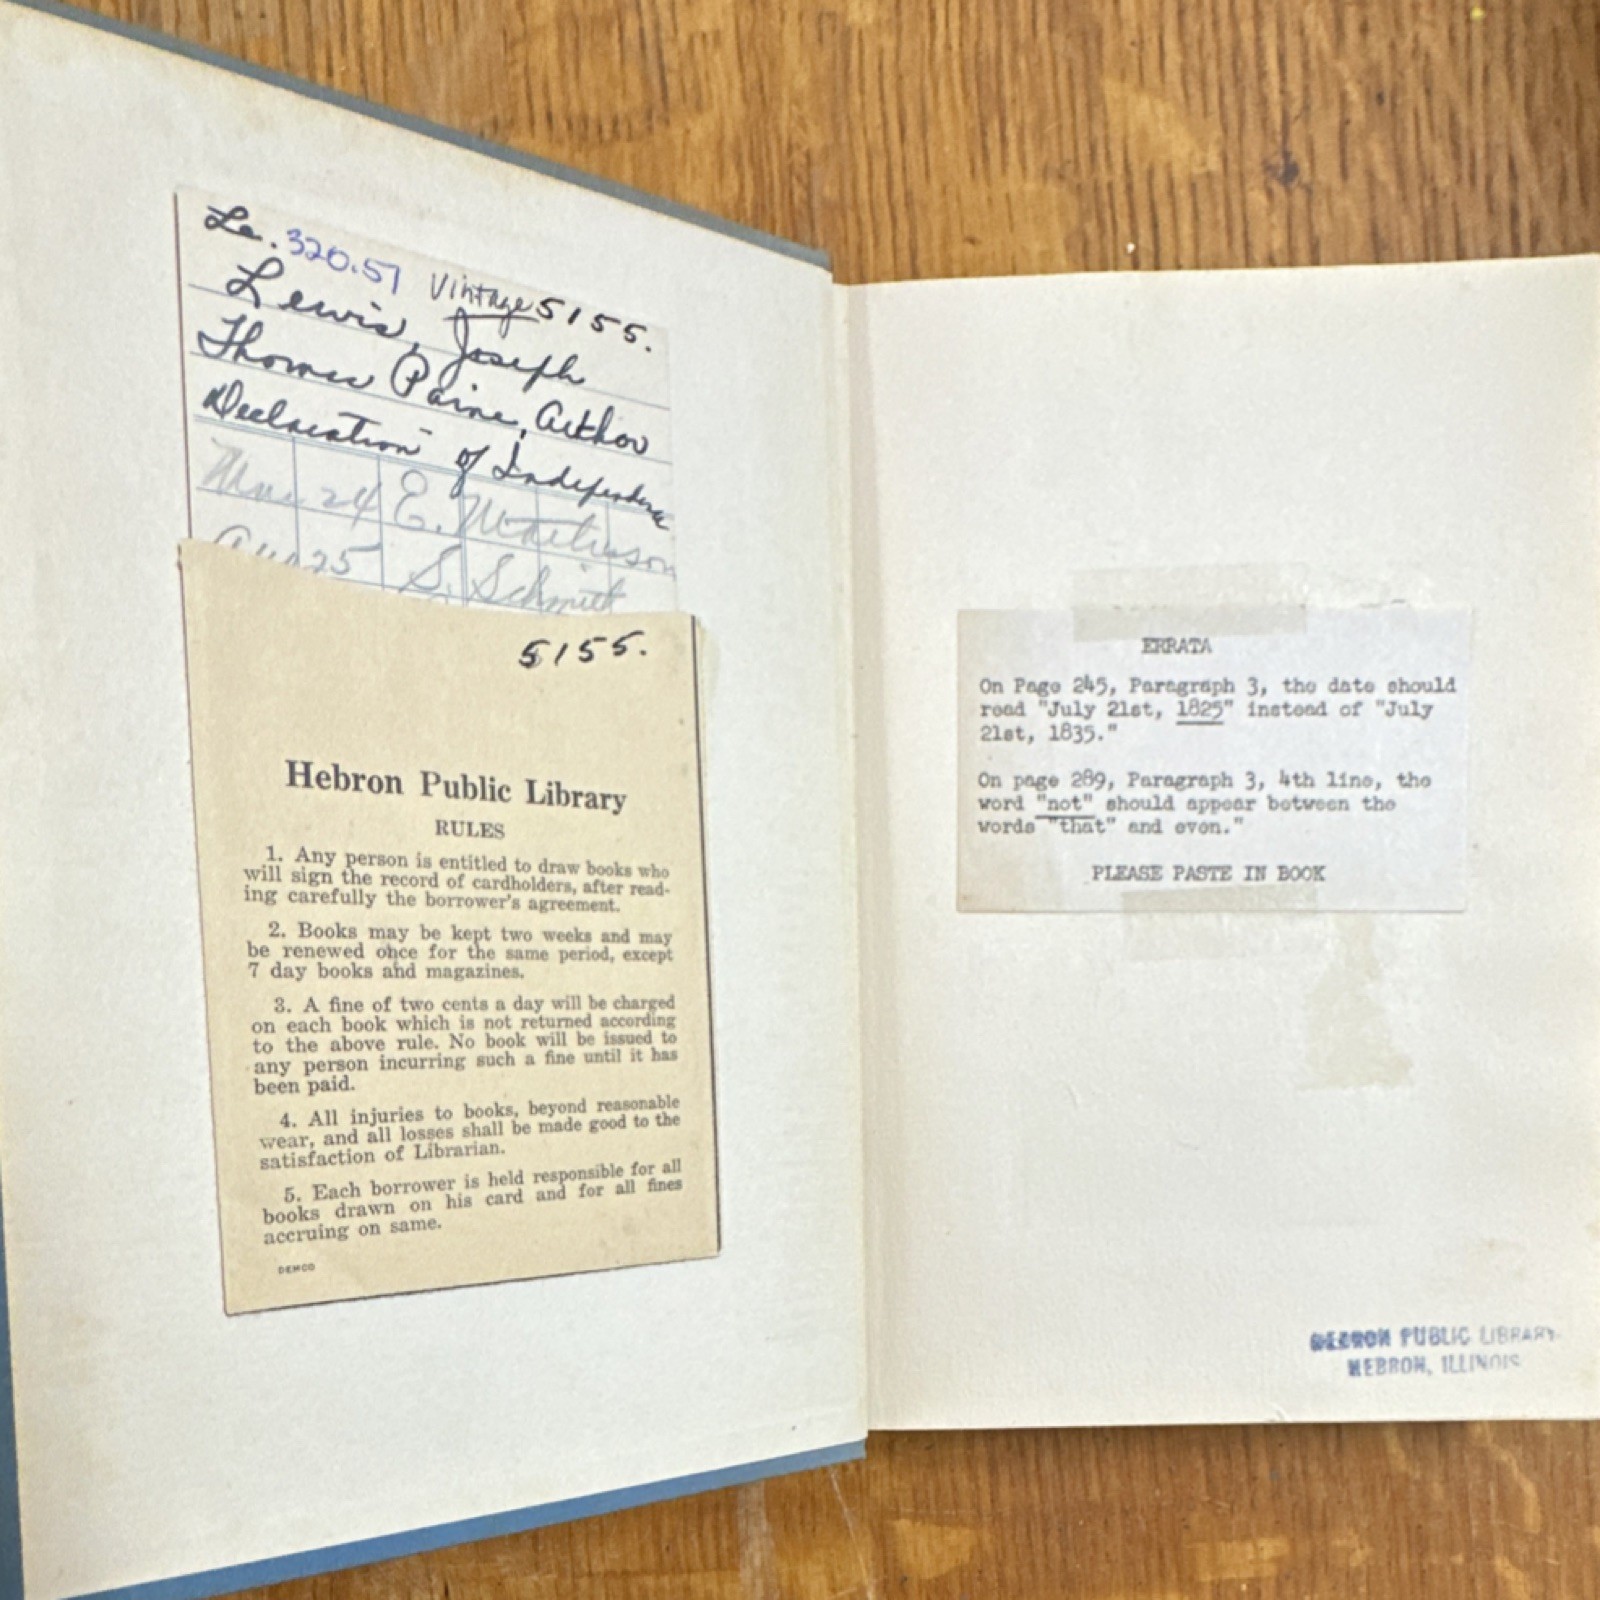 Le. 320.51 Vintage 5155.
Lewis, Joseph
Thomas Paine, Author
Declaration of Independence
24 E. Martinson
Aug 25 S. Schmitt
5155.
Hebron Public Library
RULES
1. Any person is entitled to draw books who
will sign the record of cardholders, after read-
ing carefully the borrower's agreement.
2. Books may be kept two weeks and may
be renewed once for the same period, except
7 day books and magazines.
3. A fine of two cents a day will be charged
on each book which is not returned according
to the above rule. No book will be issued to
any person incurring such a fine until it has
been paid.
4. All injuries to books, beyond reasonable
wear, and all losses shall be made good to the
satisfaction of Librarian.
5. Each borrower is held responsible for all
books drawn on his card and for all fines
accruing on same.
DEMCO
ERRATA
On Page 245, Paragraph 3, the date should
read "July 21st, 1825" instead of "July
21st, 1835."
On page 289, Paragraph 3, 4th line, the
word "not" should appear between the
words "that" and even."
PLEASE PASTE IN BOOK
HEBRON PUBLIC LIBRARY
HEBRON, ILLINOIS